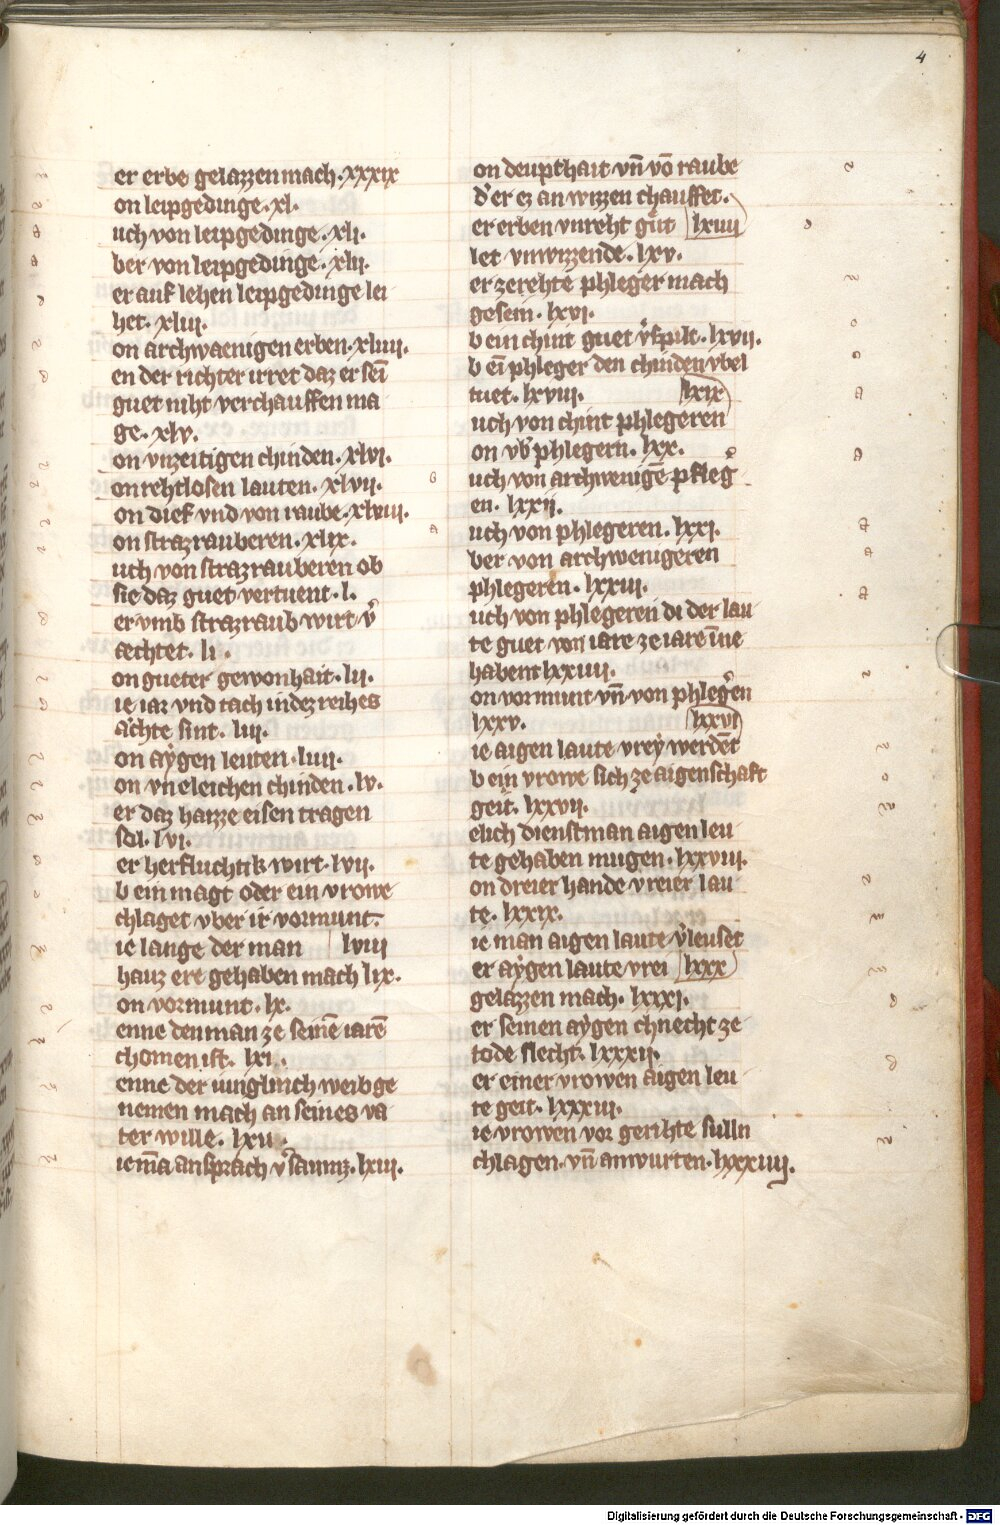 4
er erbe gelazzen mach. xxxix
on leipgedinge. xl.
uch von leipgedinge. xli.
ber von leipgedinge. xlii.
er auf lehen leipgedinge lei
het. xliii.
on archwaenigen erben. xliiii.
en der richter irret daz er sei
guet niht verchauffen ma
ge. xlv.
on vnzeitigen chinden. xlvi.
on rehtlosen lauten. xlvii.
on dief vnd von raube. xlviii.
on strazrauberen. xlix.
uch von strazrauberen ob
sie daz guet vertuent. l.
er vmb strazraub wirt v̾
æchtet. li.
on gueter gewonhait. lii.
ie iar vnd tach in dez reihes
æchte sint. liii.
on aẏgen leuten. liiii.
on vneleichen chinden. lv.
er daz haizze eisen tragen
sol. lvi.
er herfluchtik wirt. lvii.
b ein magt oder ein vrowe
chlaget vber ir vormunt.
ie lange der man lviii
hauz ere gehaben mach lix.
on vormunt. lx.
enne den man ze seinē iarē
chomen ist. lxi.
enne der iunglinch weib ge
nemen mach an seines va
ter wille. lxii.
iemā ansprach v̾saumz. lxiii.
on deupthait vn̄ vō raube
d̾ er ez an wizzen chauffet.
er erben vnreht gůt lxiiii
let vnwizzende. lxv.
er ze rehte phleger mach
gesein. lxvi.
b ein chint guet v̾spilt. lxvii.
b eī phleger den chinden vbel
tuet. lxviii. lxix
uch von chint phlegeren
on vb̾ phlegern. lxx.
uch von archwenigē pfleg̾
en. lxxii.
uch von phlegeren. lxxi.
ber von archwenigeren
phlegeren. lxxiii.
uch von phlegeren di der lau
te guet von iare ze iare īne
habent lxxiiii.
on vormunt vn̄ von phleg̾en
lxxv. lxxvi
ie aigen laute vreẏ werdēt
b ein vrowe sich ze aigenschaft
geit. lxxvii.
elich dienstman aigen leu
te gehaben mugen. lxxviii.
on dreier hande vreier lau
te. lxxix.
ie man aigen laute v̾leuset
er aẏgen laute vrei lxxx
gelazzen mach. lxxxi.
er seinen aẏgen chnecht ze
tode slecht. lxxxii.
er einer vrowen aigen leu
te geit. lxxxiii.
ie vrowen vor gerihte sulln
chlagen. vn̄ antwurten. lxxxiiii.
Digitalisierung gefördert durch die Deutsche Forschungsgemeinschaft - DFG